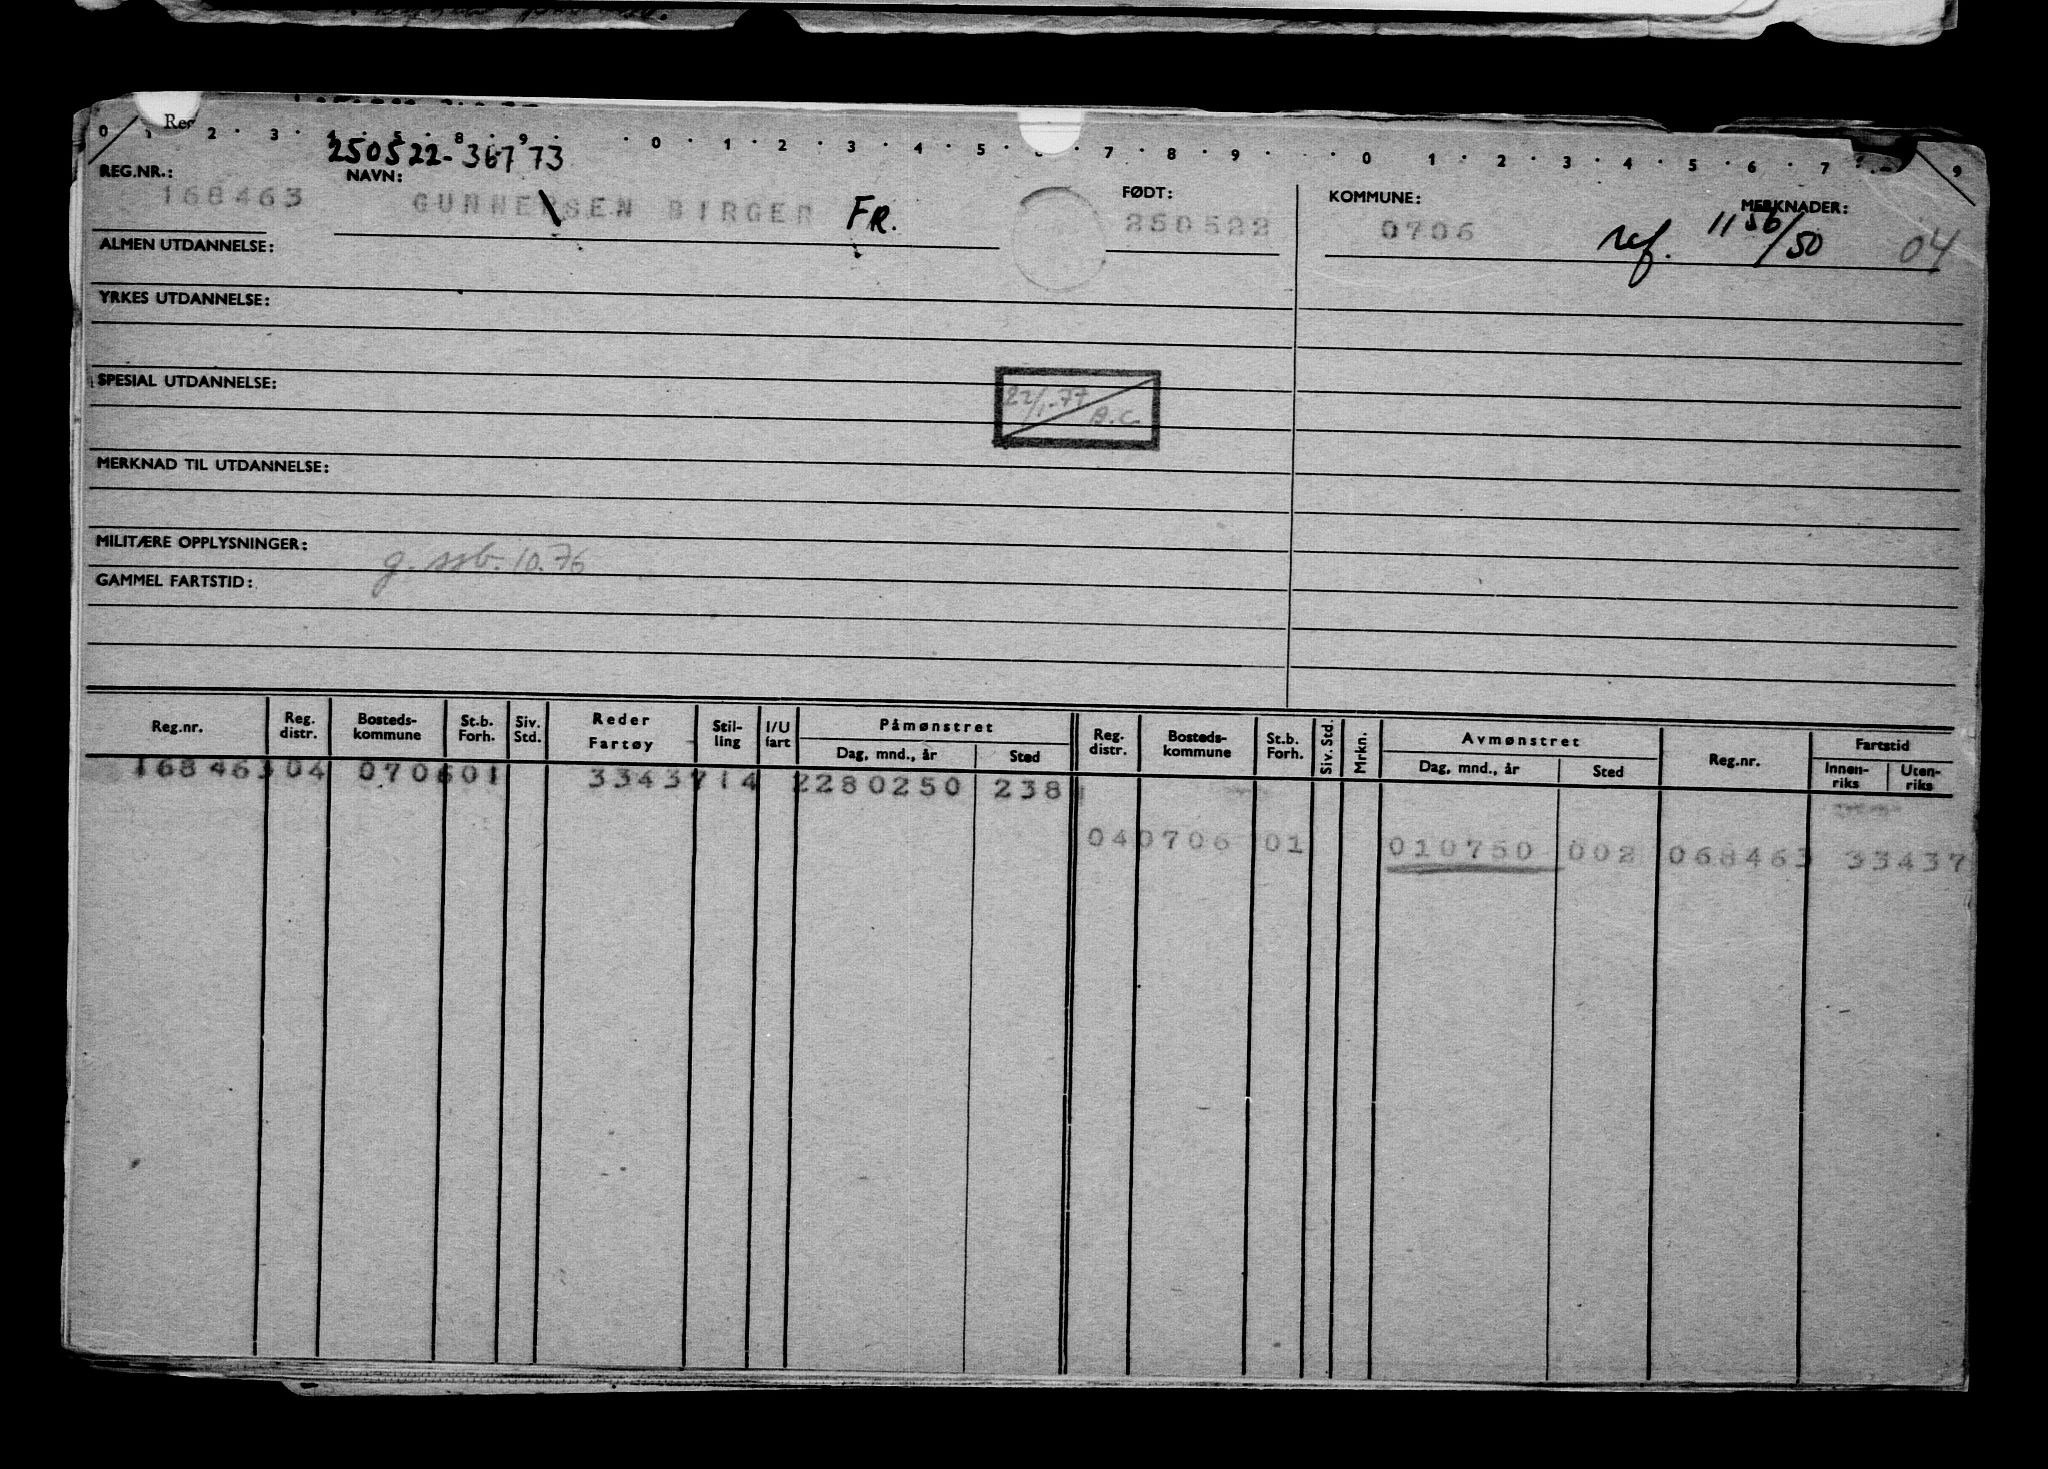 0 1 2 3 4 5 8 9 0 1 2 3 4 5 7 8 9 0 1 2 3 4 5 6 7 9
250522-36773
REG.NR.: NAVN: FØDT: KOMMUNE: MERKNADER:
168463 GUNNERSEN BIRGER FR. 250522 0706 ref. 1156/50 04
ALMEN UTDANNELSE:
YRKES UTDANNELSE:
SPESIAL UTDANNELSE:
22/1-77
A.C.
MERKNAD TIL UTDANNELSE:
MILITÆRE OPPLYSNINGER:
g. ssb. 10.76
GAMMEL FARTSTID:
Reg.nr. Reg. distr. Bosteds- kommune St.b. Forh. Siv. Std. Reder Fartøy Stil- ling I/U fart Påmønstret Dag, mnd., år Sted Reg. distr. Bosteds- kommune St.b. Forh. Siv. Std. Mrkn. Avmønstret Dag, mnd., år Sted Reg.nr. Fartstid Innen- riks Uten- riks
168463 04 0706 01 33437 14 2280250 238
04 0706 01 010750 002 068463 33437